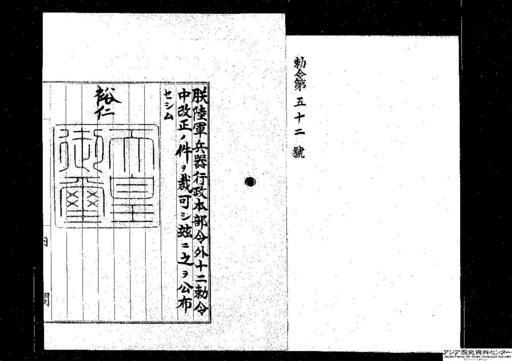 勅令第五十二號
朕陸軍兵器行政本部令外十二勅令
中改正ノ件ヲ裁可シ玆ニ之ヲ公布
セシム
裕仁
天皇
御璽
内閣
アジア歴史資料センター